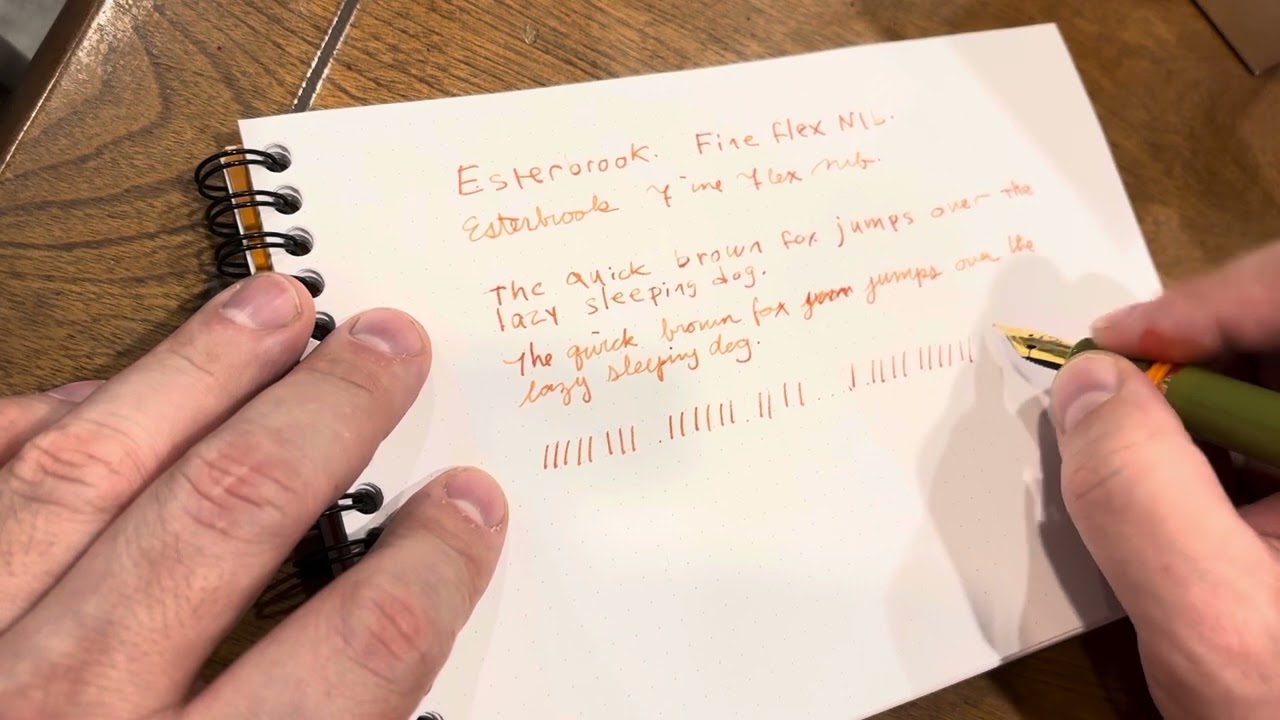 Esterbrook. Fine flex NIb.
Esterbrook Fine flex nib.
The quick brown fox jumps over the
lazy sleeping dog.
The quick brown fox jumps over the
lazy sleeping dog.